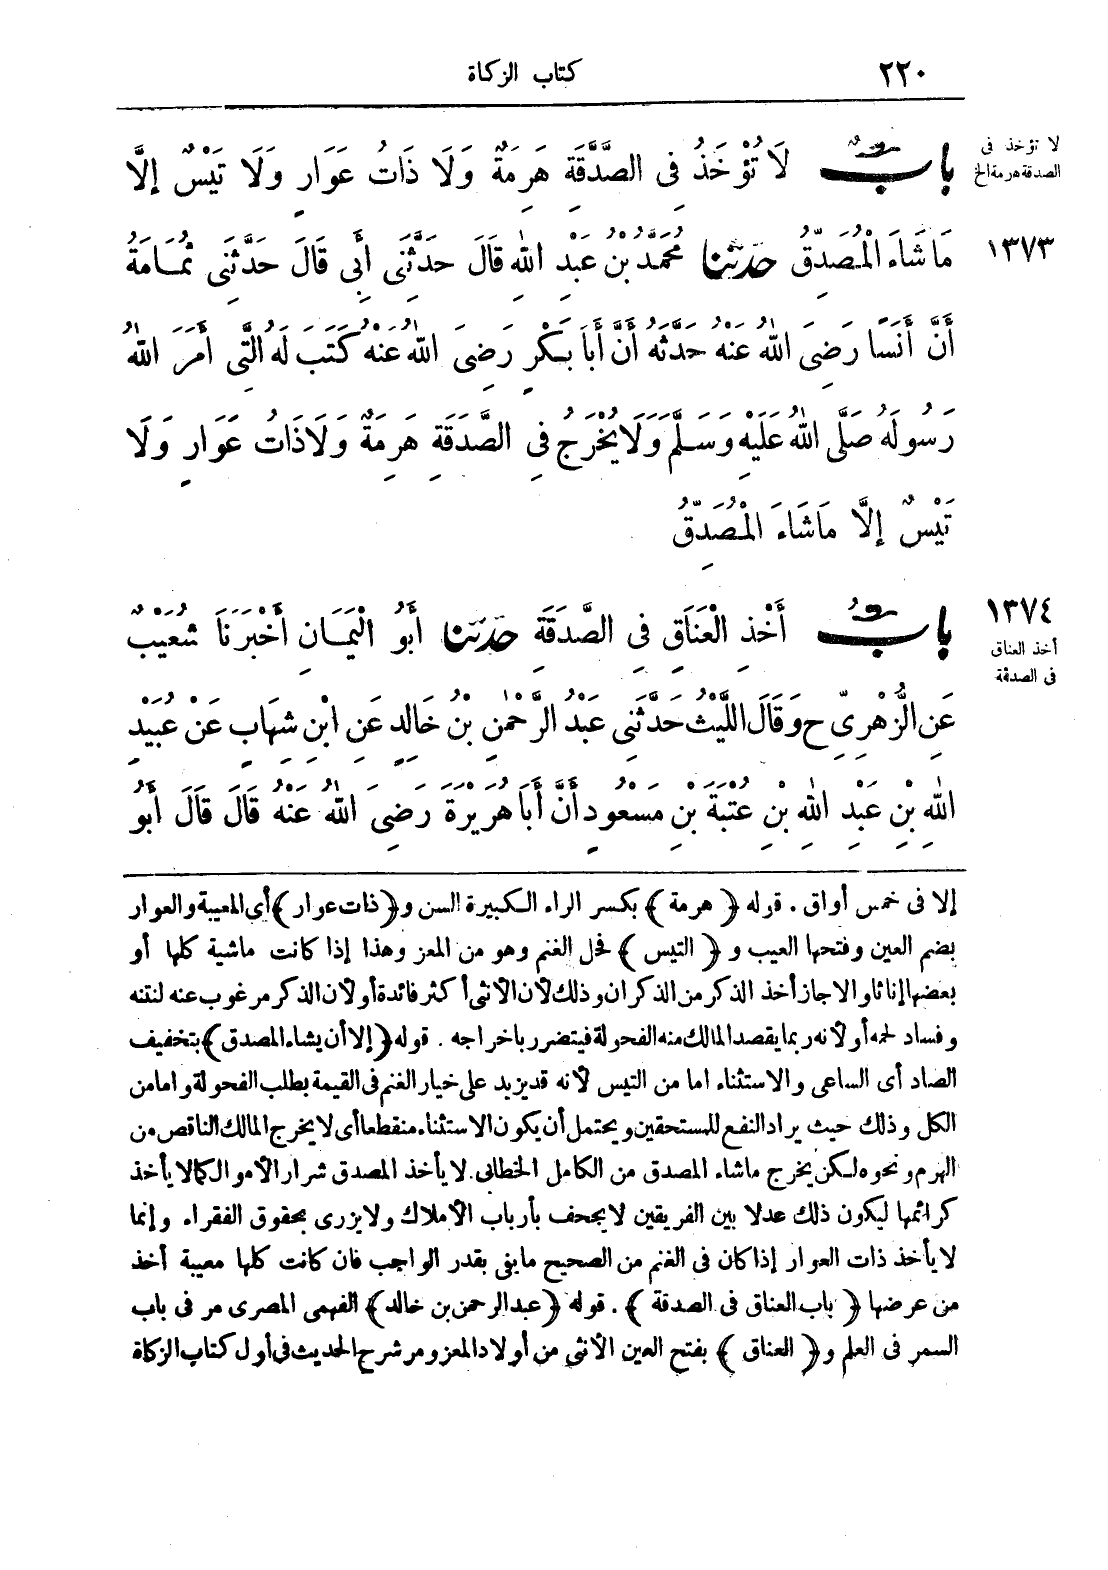 ٢٢٠ كتاب الزكاة
لا تؤخذ فى
الصدقة هرمة الخ
بابٌ لَا تُؤْخَذُ فِى الصَّدَقَةِ هَرِمَةٌ وَلَا ذَاتُ عَوَارٍ وَلَا تَيْسٌ إِلَّا
١٣٧٣ مَا شَاءَ الْمُصَدِّقُ حدثنا مُحَمَّدُ بْنُ عَبْدِ اللهِ قَالَ حَدَّثَنِى أَبِى قَالَ حَدَّثَنِى ثُمَامَةُ
أَنَّ أَنَسًا رَضِىَ اللهُ عَنْهُ حَدَّثَهُ أَنَّ أَبَا بَكْرٍ رَضِىَ اللهُ عَنْهُ كَتَبَ لَهُ الَّتِى أَمَرَ اللهُ
رَسُولَهُ صَلَّى اللهُ عَلَيْهِ وَسَلَّمَ وَلَا يُخْرَجُ فِى الصَّدَقَةِ هَرِمَةٌ وَلَا ذَاتُ عَوَارٍ وَلَا
تَيْسٌ إِلَّا مَا شَاءَ الْمُصَدِّقُ
١٣٧٤
أخذ العناق
فى الصدقة
بابُ أَخْذِ الْعَنَاقِ فِى الصَّدَقَةِ حدثنا أَبُو الْيَمَانِ أَخْبَرَنَا شُعَيْبٌ
عَنِ الزُّهْرِىِّ ح وَقَالَ اللَّيْثُ حَدَّثَنِى عَبْدُ الرَّحْمٰنِ بْنُ خَالِدٍ عَنِ ابْنِ شِهَابٍ عَنْ عُبَيْدِ
اللهِ بْنِ عَبْدِ اللهِ بْنِ عُتْبَةَ بْنِ مَسْعُودٍ أَنَّ أَبَا هُرَيْرَةَ رَضِىَ اللهُ عَنْهُ قَالَ قَالَ أَبُو
إلا فى خمس أواق . قوله ﴿ هرمة ﴾ بكسر الراء الكبيرة السن و ﴿ ذات عوار ﴾ أى المعيبة والعوار
بضم العين وفتحها العيب و ﴿ التيس ﴾ فحل الغنم وهو من المعز وهذا إذا كانت ماشية كلها أو
بعضها إناثا والا جاز أخذ الذكر من الذكران وذلك لأن الأنثى أكثر فائدة أو لأن الذكر مرغوب عنه لنتنه
وفساد لحمه أو لأنه ربما يقصد المالك منه الفحولة فيتضرر باخراجه . قوله ﴿ إلا أن يشاء المصدق ﴾ بتخفيف
الصاد أى الساعى والاستثناء اما من التيس لأنه قد يزيد على خيار الغنم فى القيمة بطلب الفحولة واما من
الكل وذلك حيث يراد النفع للمستحقين ويحتمل أن يكون الاستثناء منقطعا أى لا يخرج المالك الناقص من
الهرم ونحوه لكن يخرج ما شاء المصدق من الكامل الخطابى. لا يأخذ المصدق شرار الأموال كما لا يأخذ
كرائمها ليكون ذلك عدلا بين الفريقين لا يجحف بأرباب الأملاك ولا يزرى بحقوق الفقراء وإنما
لا يأخذ ذات العوار إذا كان فى الغنم من الصحيح ما يفى بقدر الواجب فان كانت كلها معيبة أخذ
من عرضها ﴿ باب العناق فى الصدقة ﴾ . قوله ﴿ عبد الرحمن بن خالد ﴾ الفهمى المصرى مر فى باب
السمر فى العلم و ﴿ العناق ﴾ بفتح العين الأنثى من أولاد المعز ومر شرح الحديث فى أول كتاب الزكاة